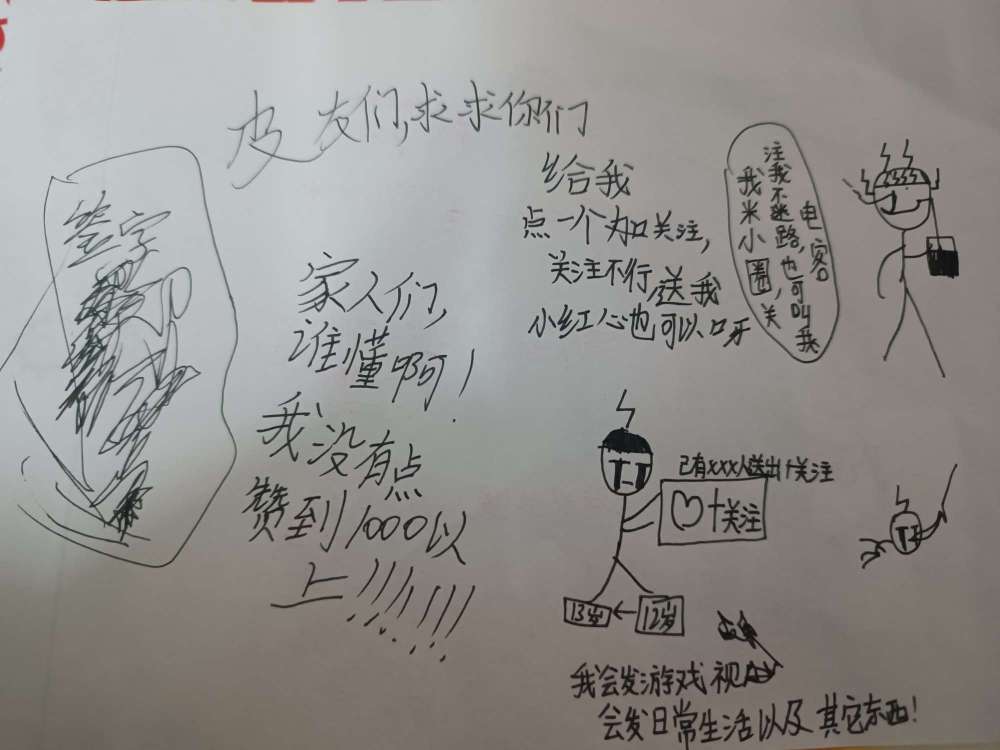 皮友们,求求你们
给我
点一个加关注,
关注不行,送我
小红心也可以呀
签字
家人们,
谁懂啊!
我没有点
赞到1000以
上!!!!!!!
我米小圈,关
注我不迷路,也可叫我
电客
已有xxx人送出十关注
♡十关注
13岁←12岁
我会发游戏视
会发日常生活以及其它东西!